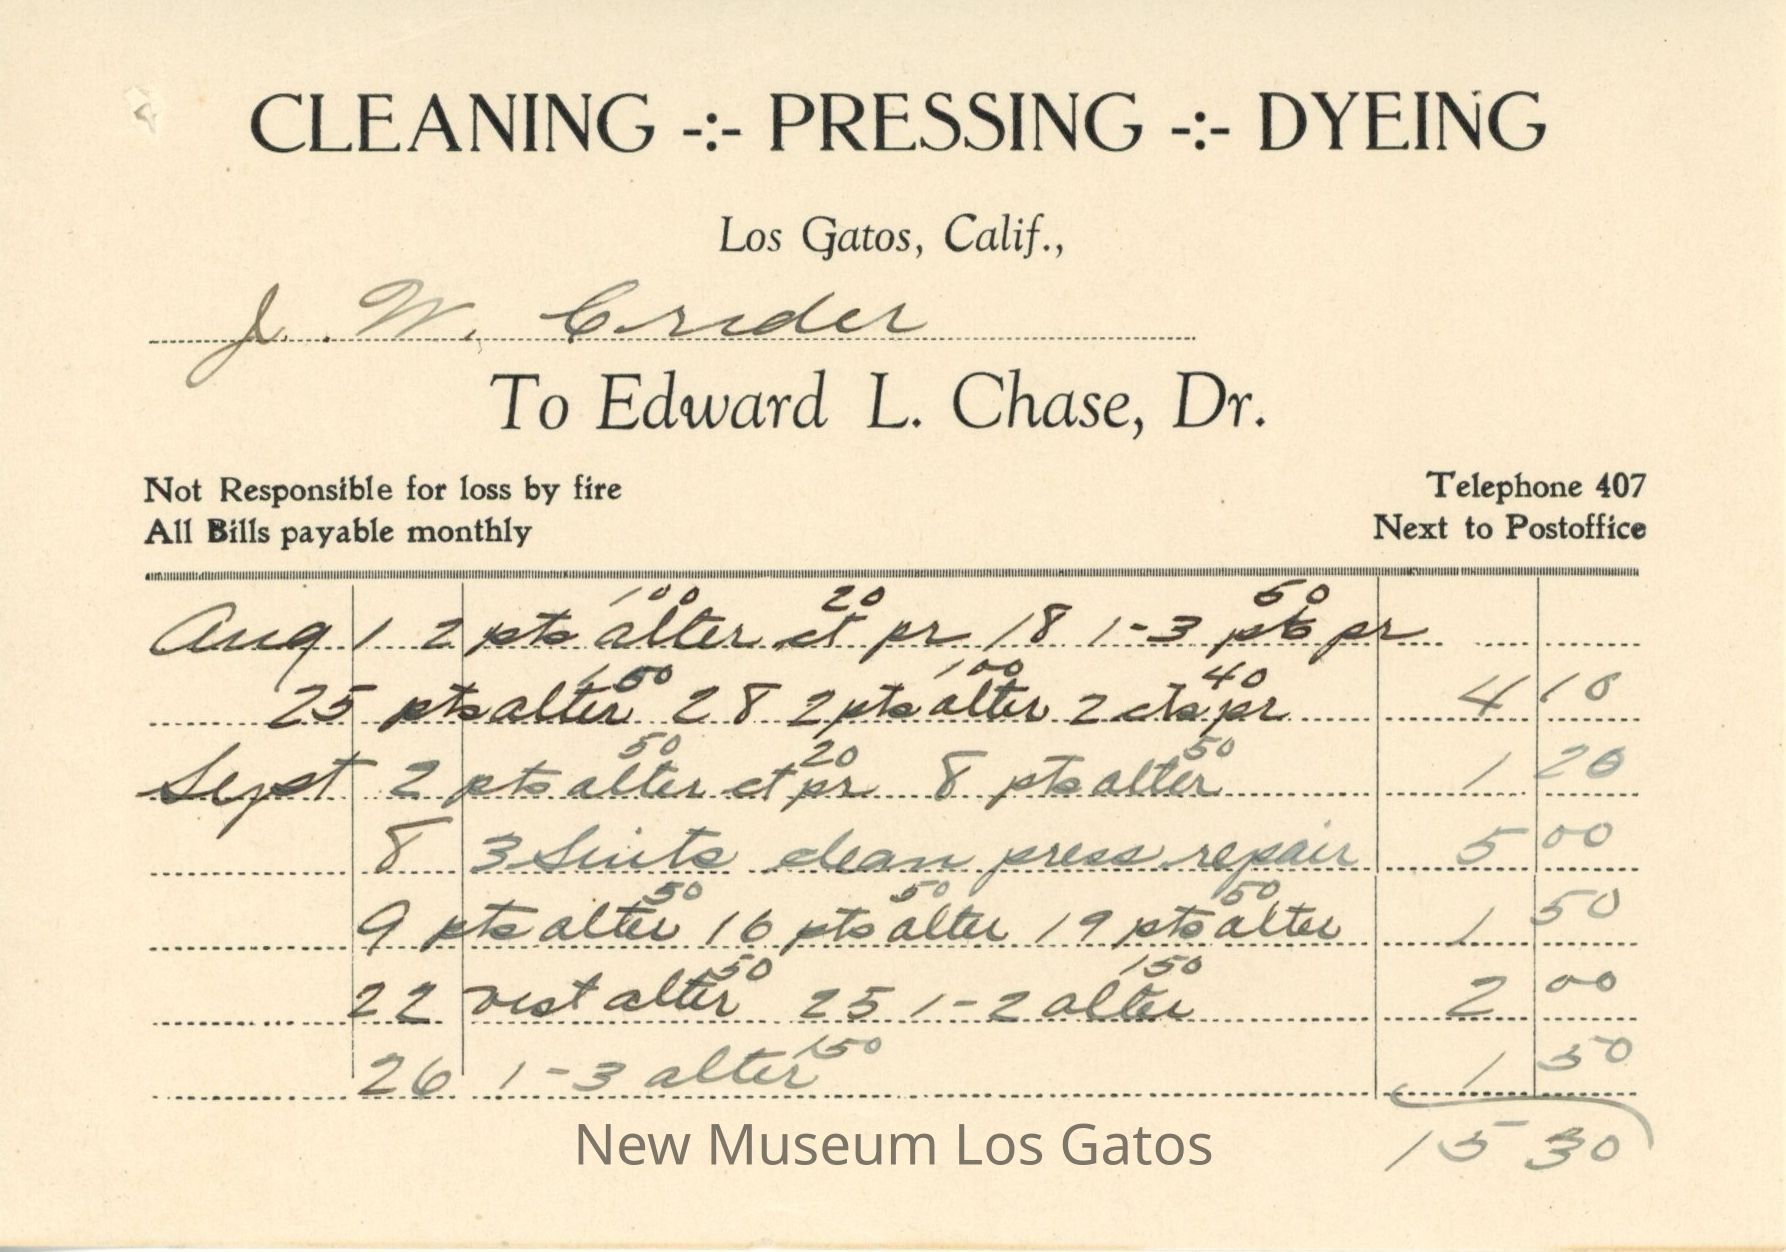 CLEANING -:- PRESSING -:- DYEING
Los Gatos, Calif.,
J. W. Crider
To Edward L. Chase, Dr.
Not Responsible for loss by fire
All Bills payable monthly
Telephone 407
Next to Postoffice
100 20 50
Aug 1 2 pts alter ct pr 18 1-3 pts pr
100 40
25 pts alter 28 2 pts alter 2 cts pr 4 10
50 20 50
Sept 2 pts alter ct pr 8 pts alter 1 20
8 3 Suits clean press repair 5 00
50 50 50
9 pts alter 16 pts alter 19 pts alter 1 50
50 150
22 vest alter 25 1-2 alter 2 00
150
26 1-3 alter 1 50
15 30
New Museum Los Gatos